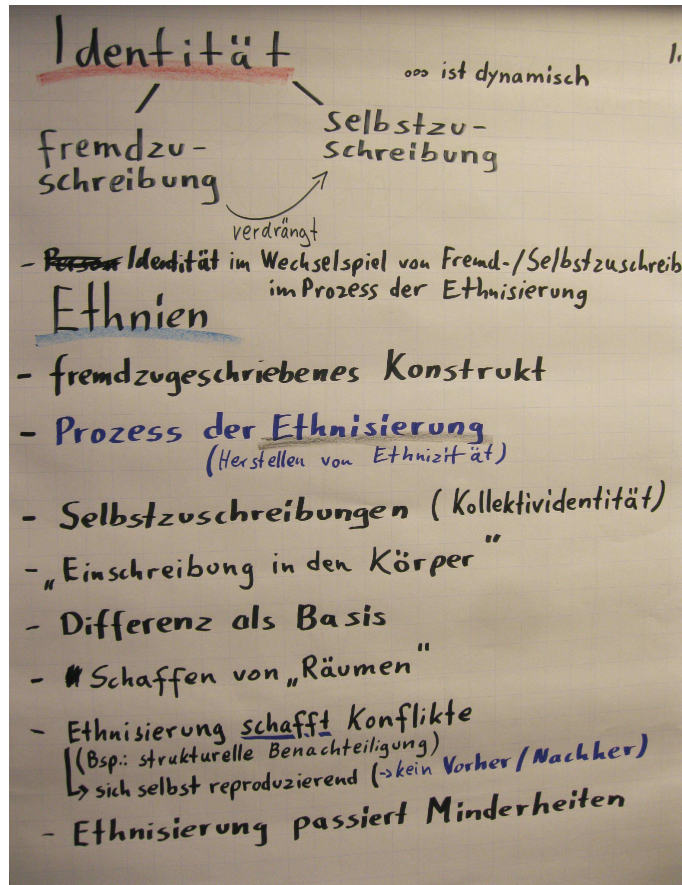 Identität
1.
ooo ist dynamisch
fremdzu-
schreibung
selbstzu-
schreibung
verdrängt
- Person Identität im Wechselspiel von Fremd-/Selbstzuschreib
im Prozess der Ethnisierung
Ethnien
- fremdzugeschriebenes Konstrukt
- Prozess der Ethnisierung
(Herstellen von Ethnizität)
- Selbstzuschreibungen (Kollektividentität)
- „Einschreibung in den Körper"
- Differenz als Basis
- Schaffen von „Räumen"
- Ethnisierung schafft Konflikte
(Bsp.: strukturelle Benachteiligung)
↳ sich selbst reproduzierend (→kein Vorher/Nachher)
- Ethnisierung passiert Minderheiten